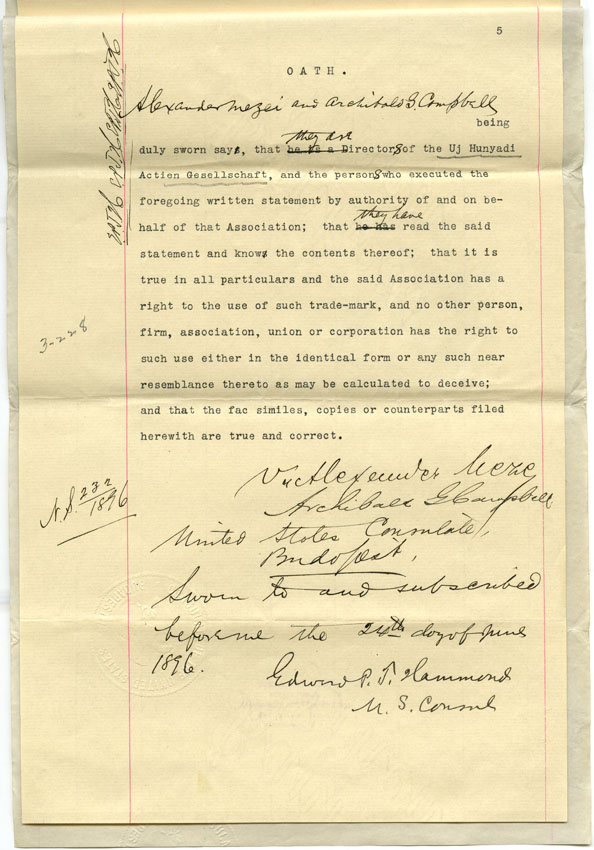 5
OATH.
Alexander Mezei and Archibald G. Campbell
being
they are
duly sworn says, that he is a Directors of the Uj Hunyadi
Action Gesellschaft, and the persons who executed the
foregoing written statement by authority of and on be-
they have
half of that Association; that he has read the said
statement and knows the contents thereof; that it is
true in all particulars and the said Association has a
right to the use of such trade-mark, and no other person,
firm, association, union or corporation has the right to
such use either in the identical form or any such near
resemblance thereto as may be calculated to deceive;
and that the fac similes, copies or counterparts filed
herewith are true and correct.
3-228
N.S. 232/1896
Alexander Mezei
Archibald G Campbell
United States Consulate,
Budapest,
Sworn to and subscribed
before me the 24th day of June
1896.
Edward P. T. Hammond
U. S. Consul